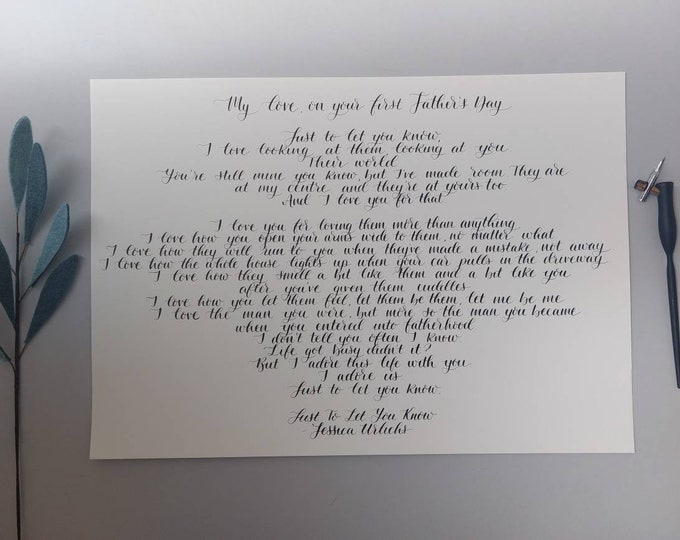 My love, on your first Father's Day
Just to let you know,
I love looking at them, looking at you
Their world
You're still mine you know, but I've made room They are
at my centre and they're at yours too
And I love you for that
I love you for loving them more than anything
I love how you open your arms wide to them, no matter what
I love how they will run to you when they've made a mistake, not away
I love how the whole house lights up when your car pulls in the driveway
I love how they smell a bit like them and a bit like you
after you've given them cuddles
I love how you let them feel, let them be them, let me be me
I love the man you were, but more so the man you became
when you entered into fatherhood
I don't tell you often I know
Life got busy didn't it?
But I adore this life with you
I adore us
Just to let you know.
Just To Let You Know
- Jessica Urlichs